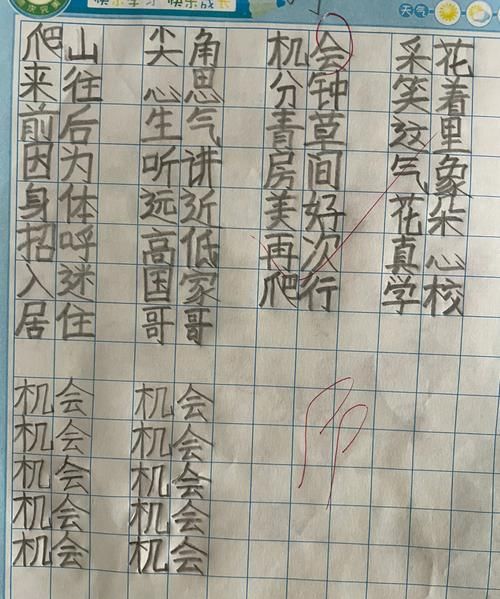 快乐学习 快乐成长 天气
爬山 尖角 机会 采花
来往 心思 分钟 笑着
前后 生气 青草 这里
因为 听讲 房间 气象
身体 远近 美好 花朵
招呼 高低 再次 真心
入迷 国家 爬行 学校
居住 哥哥
机会 机会
机会 机会
机会 机会
机会 机会
机会 机会